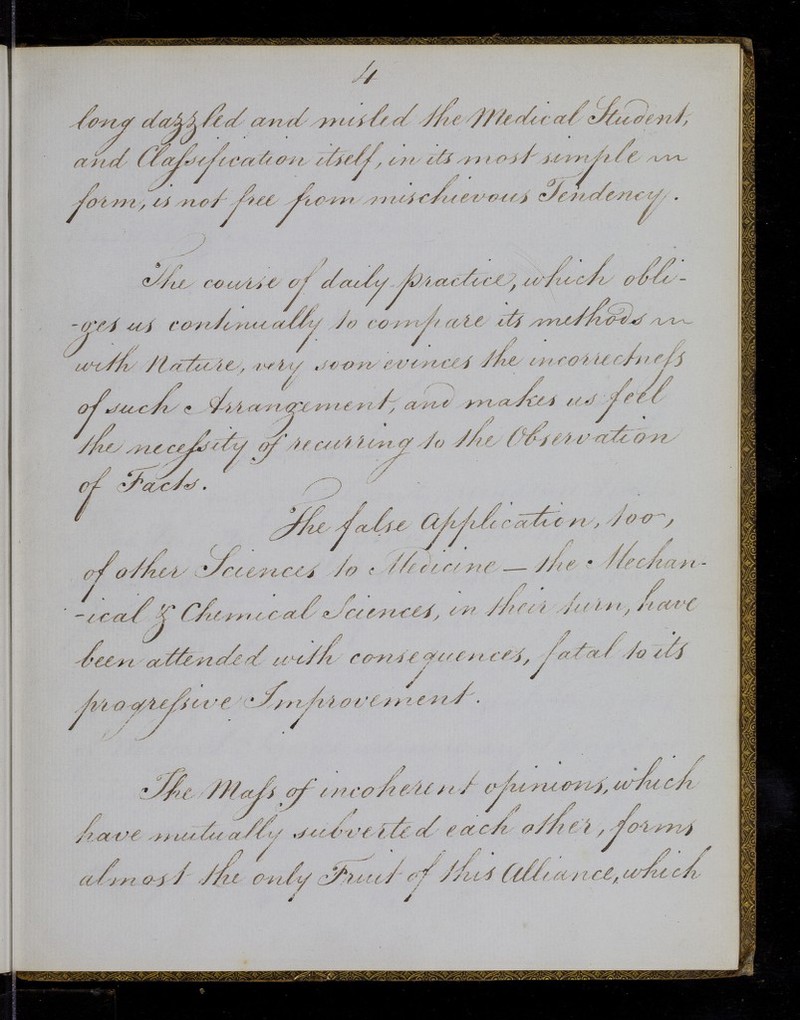 4
long dazzled and misled the Medical Student,
and Claſsification itself, in its most simple
form, is not free from mischievous Tendency.
The course of daily practice, which obli-
-ges us continually to compare its methods
with Nature, very soon evinces the incorrectneſs
of such Arrangement, and makes us feel
the neceſsity of recurring to the Observation
of Facts.
The false Application, too,
of other Sciences to Medicine — the Mechan-
-ical & Chemical Sciences, in their turn, have
been attended with consequences, fatal to its
progreſsive Improvement.
The Maſs of incoherent opinions, which
have mutually subverted each other, forms
almost the only Fruit of this Alliance, which